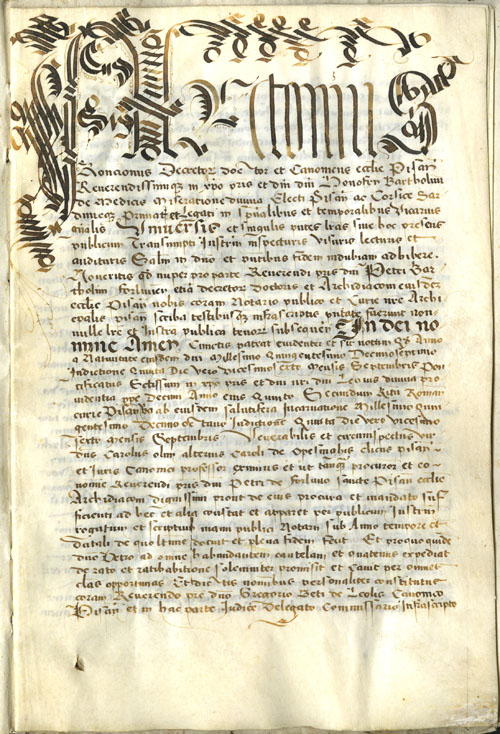 Antonius
Roncionius Decretor Doctor et Canonicus ecclie Pisan
Reverendissimiq in xpo pris et dni dni Honofrij Bartholini
de Medicis Miseratione divina Electi Pisan ac Corsice Sar
dinieq Primat et Legati in spualibus et temporalibus Vicarius
gnalis Universis et singulis pntes lras sive hoc presens
publicum Transumpti Instrm inspecturis visuris lecturis et
audituris Saltm in dno et pntibus fidem indubiam adhibere.
Noveritis qd nuper pro parte Reverendi pris dni Petri Bar
tholini decretor Doctoris et Archidiaconi eiusdez
ecclie Pisan nobis coram Notario publico et Curie nre Archi
epalis pisan scriba testibusq infrascriptis pntate fuerunt non
nulle lre et Instra publica tenor subsequen In dei no
mine Amen Cunctis pateat evidenter et sit notum qd Anno
a Nativitate eiusdem dni Millesimo Quingentesimo Decimoseptimo
Indictione Quinta Die vero vicesimosexto Mensis Septembris Pon
tificatus Sctissimi in xpo pris et dni nri dni Leonis divina pro
videntia ppe Decimi Anno eius Quinto Secundum Ritu Roman
curie Pisan vo ab eiusdem salutifera Incarnatione Millesimo Quin
gentesimo Decimo octavo Indictione Quinta die vero vicesimo
sexto Mensis Septembris Venerabilis et circumspectus vir
dnus Carolus olim alterius Caroli de clicus pisan
et Iuris Canonici professor et ut tanq procurator et co
nomie Reverendi pris dni Petri de pisane ecclie
Archidiaconi dignissimi pront de eius procura et mandato suf
ficienti ad hec et alia constat et apparet per publicum Instrm
rogatum et scriptum manu publici Notarii sub Anno tempore et
Datali de quo in et plena fidem fecit Et pro quo quide
dno Petro ad omne habundantem cautelam et quatenus expediat
de rato et ratihabitione solemniter promisit et cavit per omnes
clas opportunas Et dictis nominibus personaliter constitutus
coram Reverendo pre dno Gregorio Beti de Leolis Canonico
Pisan et in hac parte Iudice Delegato Commissario Infrascripto